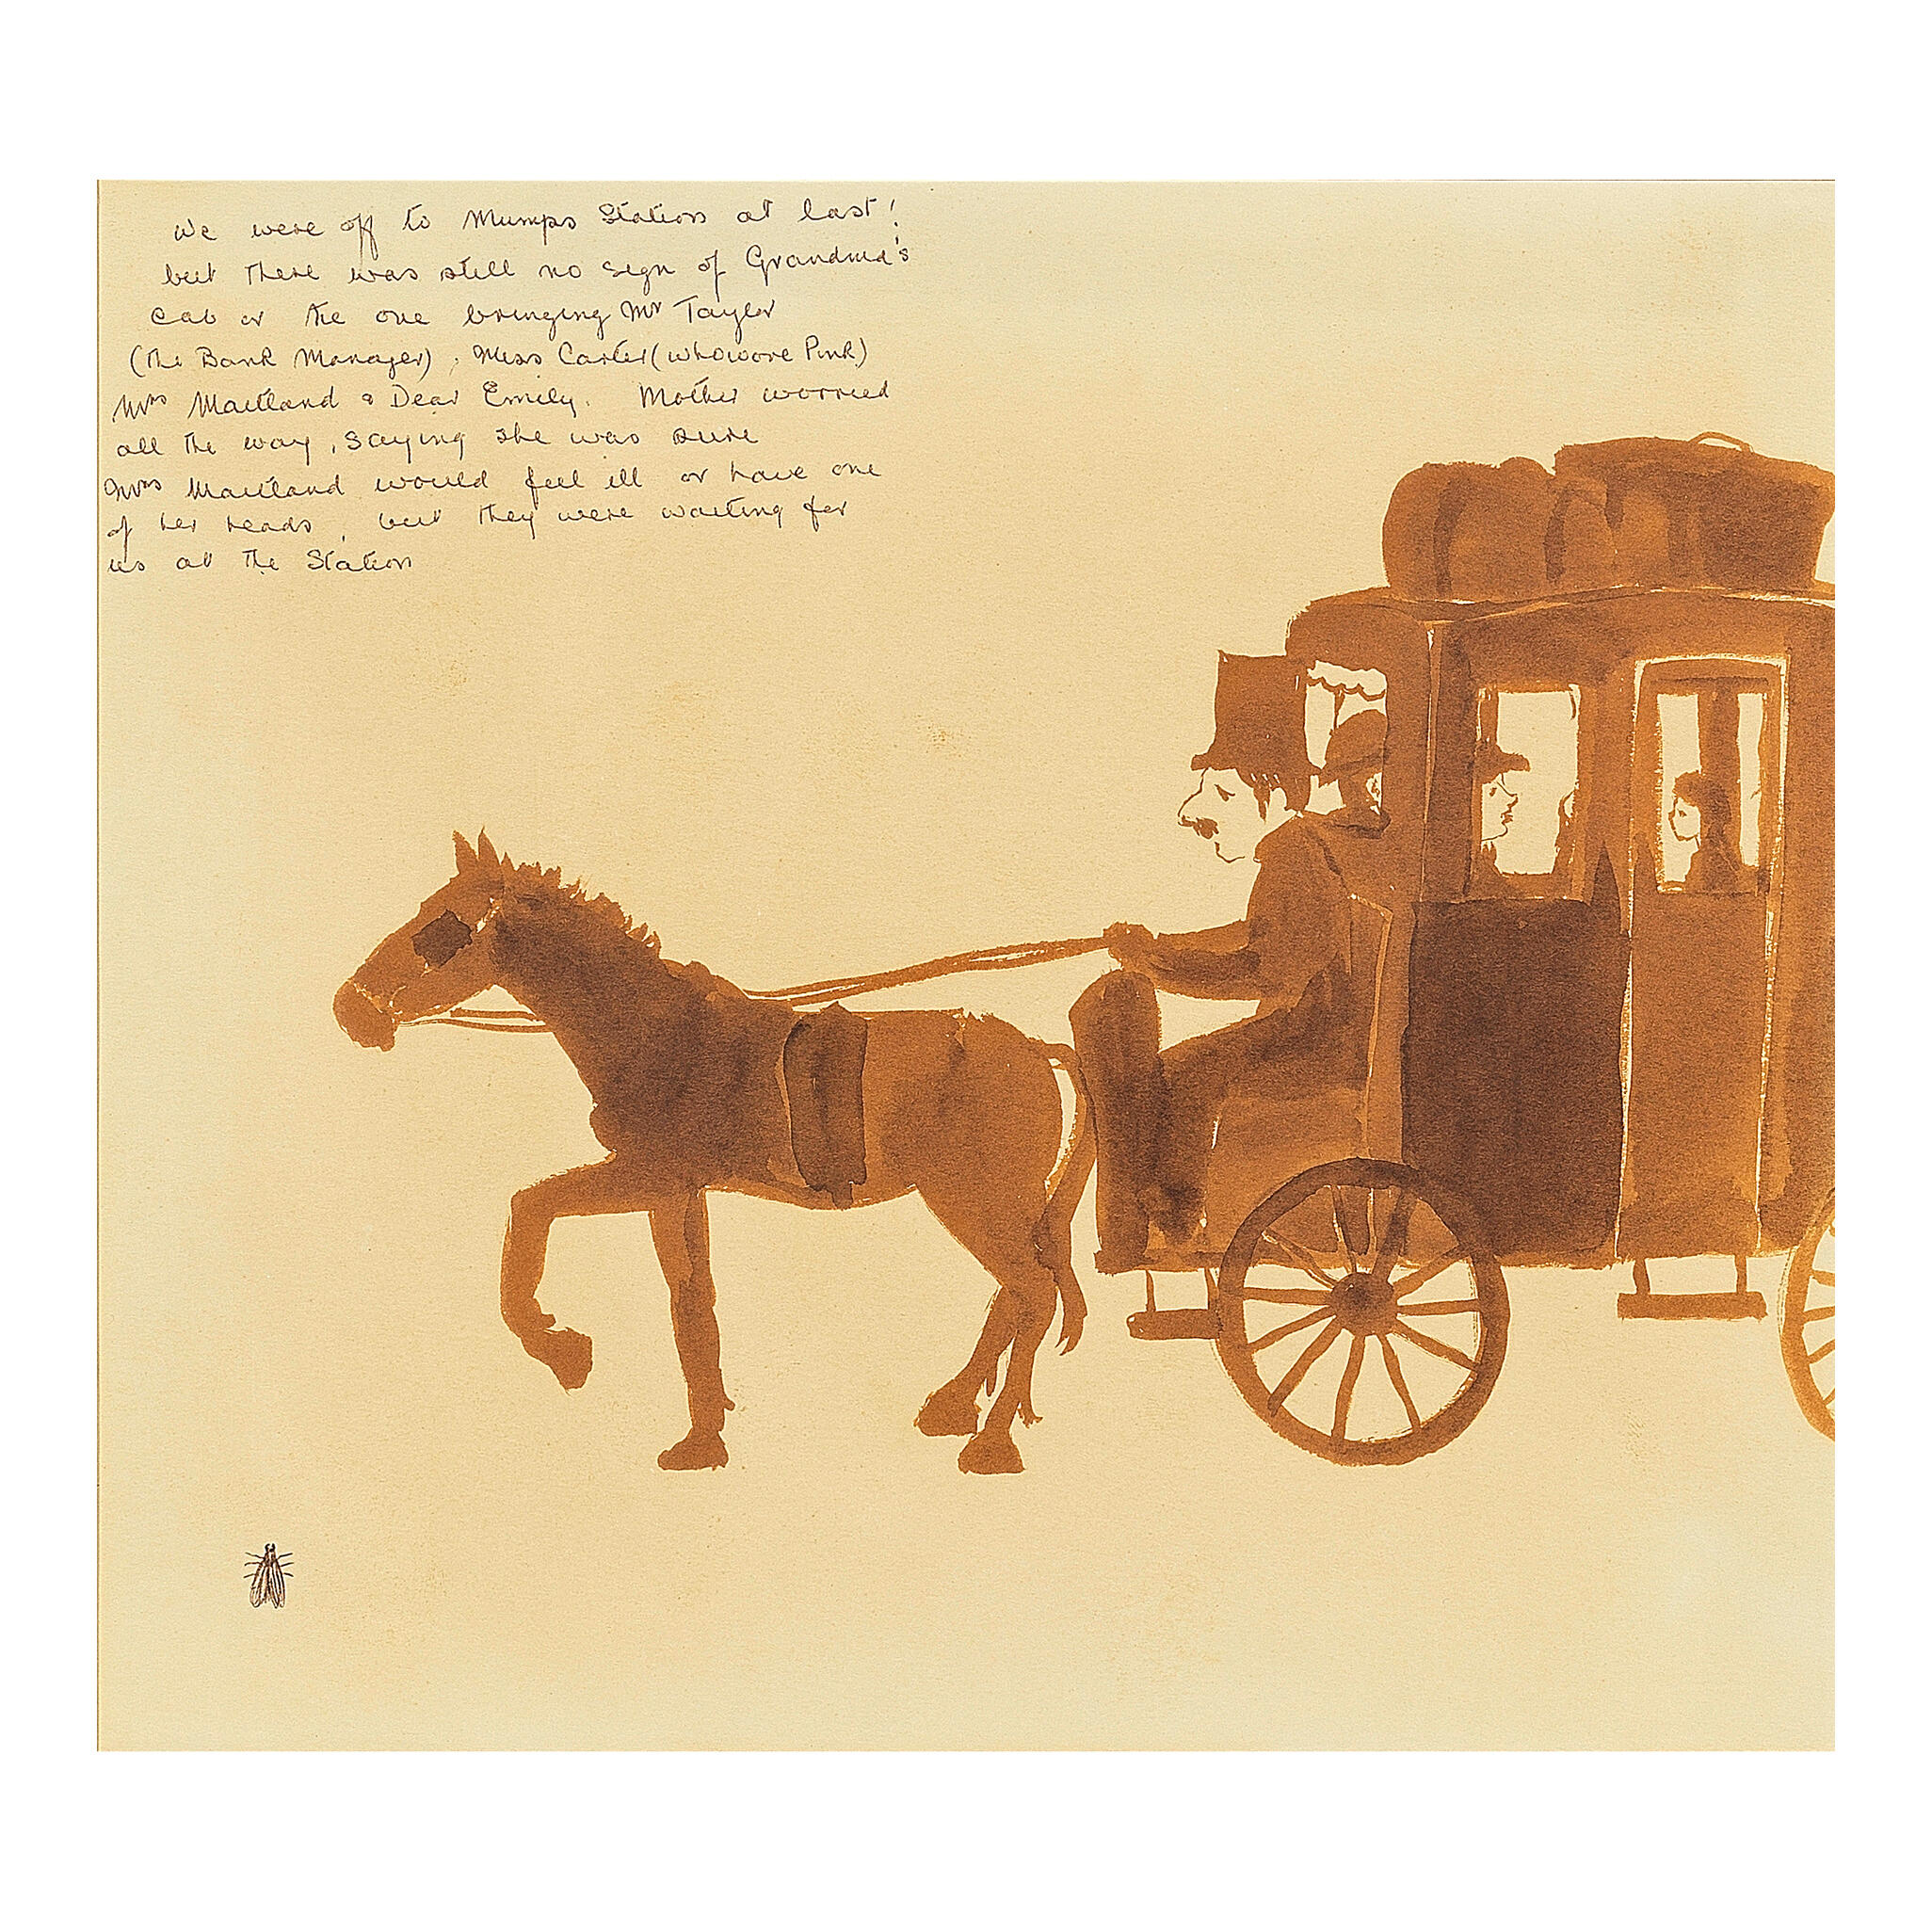 We were off to Mumps Station at last!
but there was still no sign of Grandma's
Cab or the one bringing Mr Taylor
(the Bank Manager), Miss Carter (who wore Pink)
Mrs Maitland & Dear Emily. Mother worried
all the way, saying she was sure
Mrs Maitland would feel ill or have one
of her heads, but they were waiting for
us at the Station